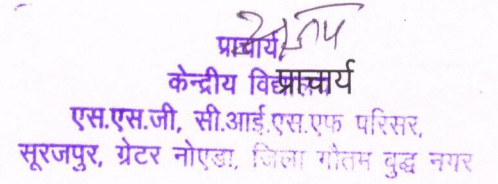 प्राचार्य
केन्द्रीय प्राचार्य
एस.एस.जी, सी.आई.एस.एफ परिसर,
सूरजपुर, ग्रेटर नोएडा, जिला गौतम बुद्ध नगर